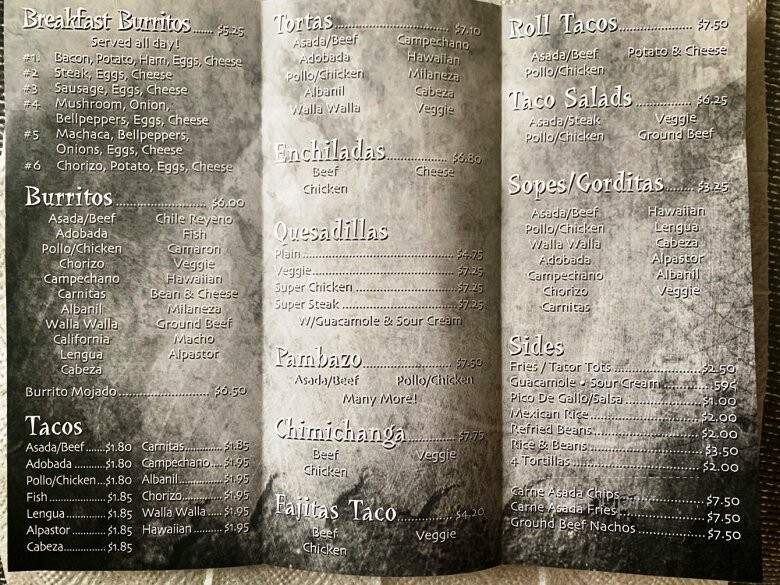 Breakfast Burritos ...... $5.25
Served all day!
#1. Bacon, Potato, Ham, Eggs, Cheese
#2 Steak, Eggs, Cheese
#3 Sausage, Eggs, Cheese
#4 Mushroom, Onion,
Bellpeppers, Eggs, Cheese
#5 Machaca, Bellpeppers,
Onions, Eggs, Cheese
#6 Chorizo, Potato, Eggs, Cheese
Burritos ...... $6.00
Asada/Beef Chile Reyeno
Adobada Fish
Pollo/Chicken Camaron
Chorizo Veggie
Campechano Hawaiian
Carnitas Bean & Cheese
Albanil Milaneza
Walla Walla Ground Beef
California Macho
Lengua Alpastor
Cabeza
Burrito Mojado ...... $6.50
Tacos
Asada/Beef ...... $1.80 Carnitas ...... $1.85
Adobada ...... $1.80 Campechano .... $1.95
Pollo/Chicken .. $1.80 Albanil ...... $1.95
Fish ...... $1.85 Chorizo ...... $1.95
Lengua ...... $1.85 Walla Walla .... $1.95
Alpastor ...... $1.85 Hawaiian ...... $1.95
Cabeza ...... $1.85
Tortas ...... $7.10
Asada/Beef Campechano
Adobada Hawaiian
Pollo/Chicken Milaneza
Albanil Cabeza
Walla Walla Veggie
Enchiladas ...... $6.80
Beef Cheese
Chicken
Quesadillas
Plain ...... $4.75
Veggie ...... $7.25
Super Chicken ...... $7.25
Super Steak ...... $7.25
W/Guacamole & Sour Cream
Pambazo ...... $7.50
Asada/Beef Pollo/Chicken
Many More!
Chimichanga ...... $7.75
Beef Veggie
Chicken
Fajitas Taco ...... $4.20
Beef Veggie
Chicken
Roll Tacos ...... $7.50
Asada/Beef Potato & Cheese
Pollo/Chicken
Taco Salads ...... $6.25
Asada/Steak Veggie
Pollo/Chicken Ground Beef
Sopes/Gorditas ...... $3.25
Asada/Beef Hawaiian
Pollo/Chicken Lengua
Walla Walla Cabeza
Adobada Alpastor
Campechano Albanil
Chorizo Veggie
Carnitas
Sides
Fries / Tator Tots ...... $2.50
Guacamole • Sour Cream ...... .59¢
Pico De Gallo/Salsa ...... $1.00
Mexican Rice ...... $2.00
Refried Beans ...... $2.00
Rice & Beans ...... $3.50
4 Tortillas ...... $2.00
Carne Asada Chips ...... $7.50
Carne Asada Fries ...... $7.50
Ground Beef Nachos ...... $7.50